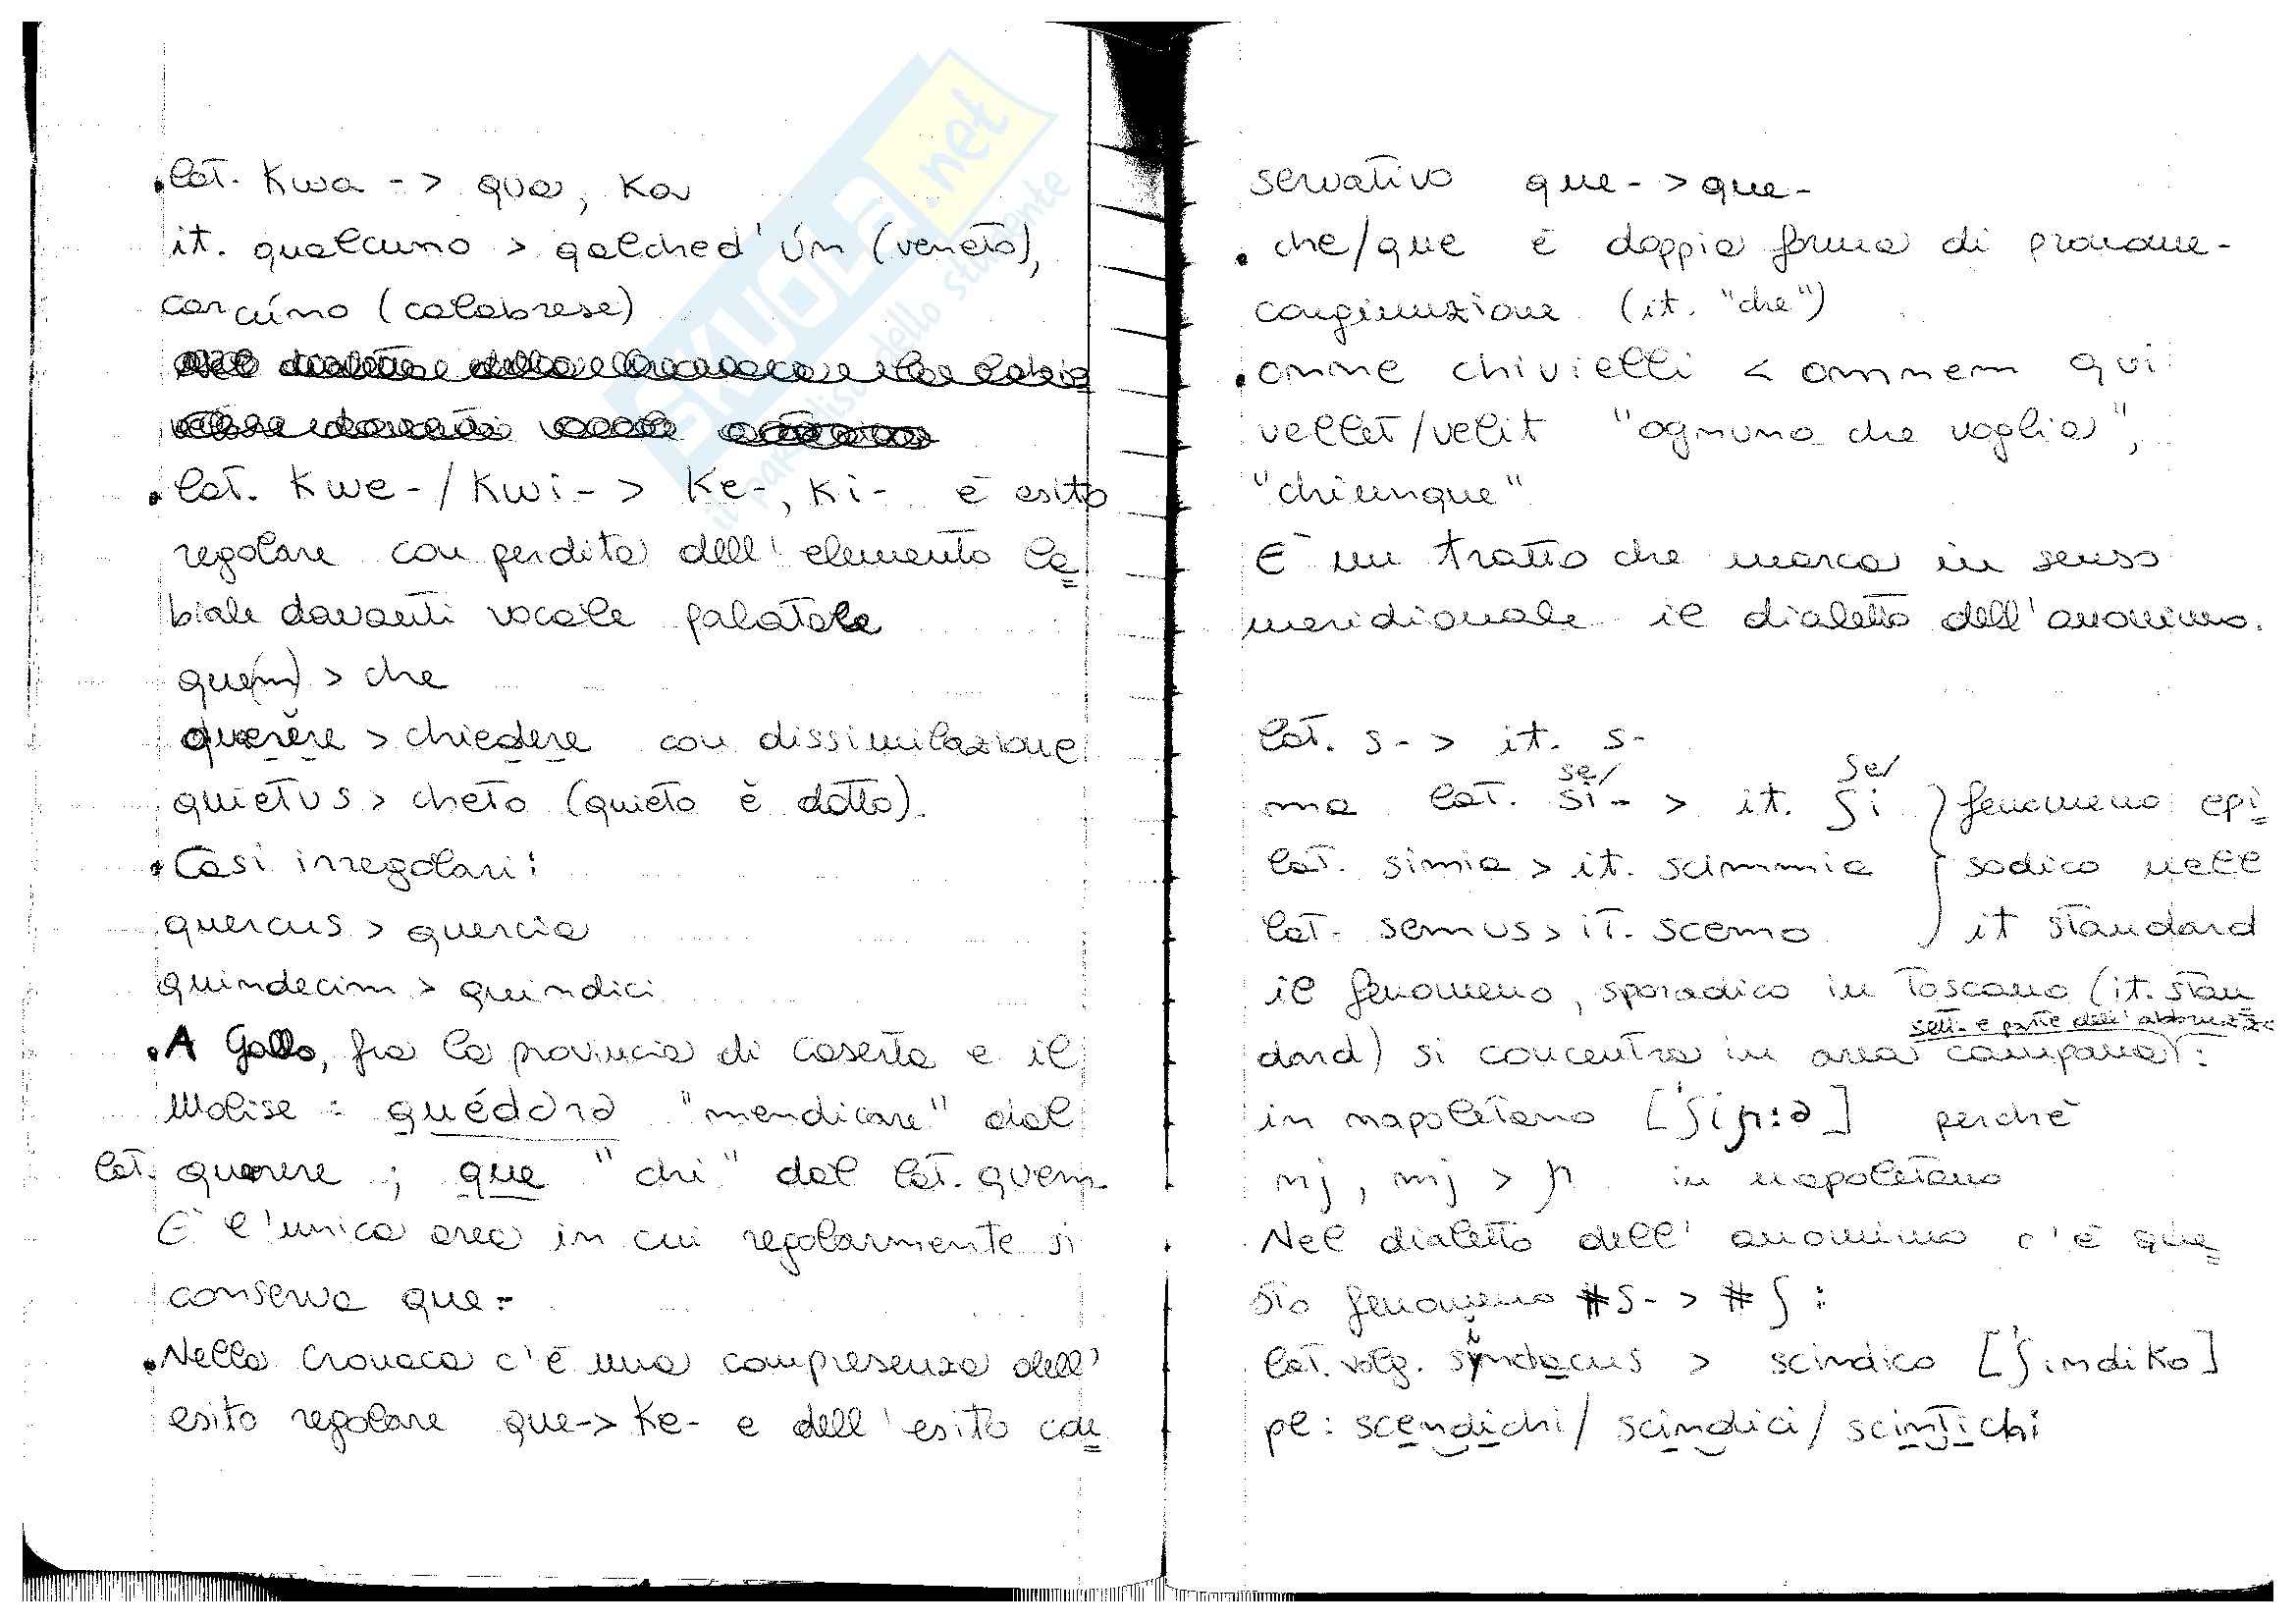 • lat. Kwa -> qua, Ka
it. qualcuno > qalched'ún (veneto),
carcúno (calabrese)
• lat. Kwe-/Kwi- > Ke-, Ki- è esito
regolare con perdita dell'elemento la
biale davanti vocale palatale
que(m) > che
querĕre > chiedere con dissimilazione
quietus > cheto (quieto è dotto).
• Casi irregolari:
quercus > quercia
quindecim > quindici
• A Gallo, fra la provincia di Caserta e il
Molise: quédərə "mendicare" dal
lat. quaerere; que "chi" dal lat. quem.
È l'unica area in cui regolarmente si
conserva que-
• Nella Cronaca c'è una compresenza dell'
esito regolare que-> Ke- e dell'esito con
servativo que- > que-
• che/que è doppia forma di pronome-
congiunzione (it. "che")
• omne chivielli < omnem qui
vellet/velit "ognuno che voglia",
"chiunque"
È un tratto che marca in senso
meridionale il dialetto dell'anonimo.
lat. s- > it. s-
ma lat. se/si- > it. ʃe/ʃi } fenomeno epi
lat. simia > it. scimmia sodico nell
lat. semus > it. scemo it standard
il fenomeno, sporadico in Toscano (it. stan
dard) si concentra in area campana sett. e parte dell'abruzzo:
in napoletano ['ʃiɲ:ə] perchè
nj, mj > ɲ in napoletano
Nel dialetto dell'anonimo c'è que
sto fenomeno #s- > #ʃ:
lat. volg. sindacus > scindico ['ʃindiko]
pl: scendichi/ scindici/ scintichi
SKUOLA.net
il paradiso dello studente